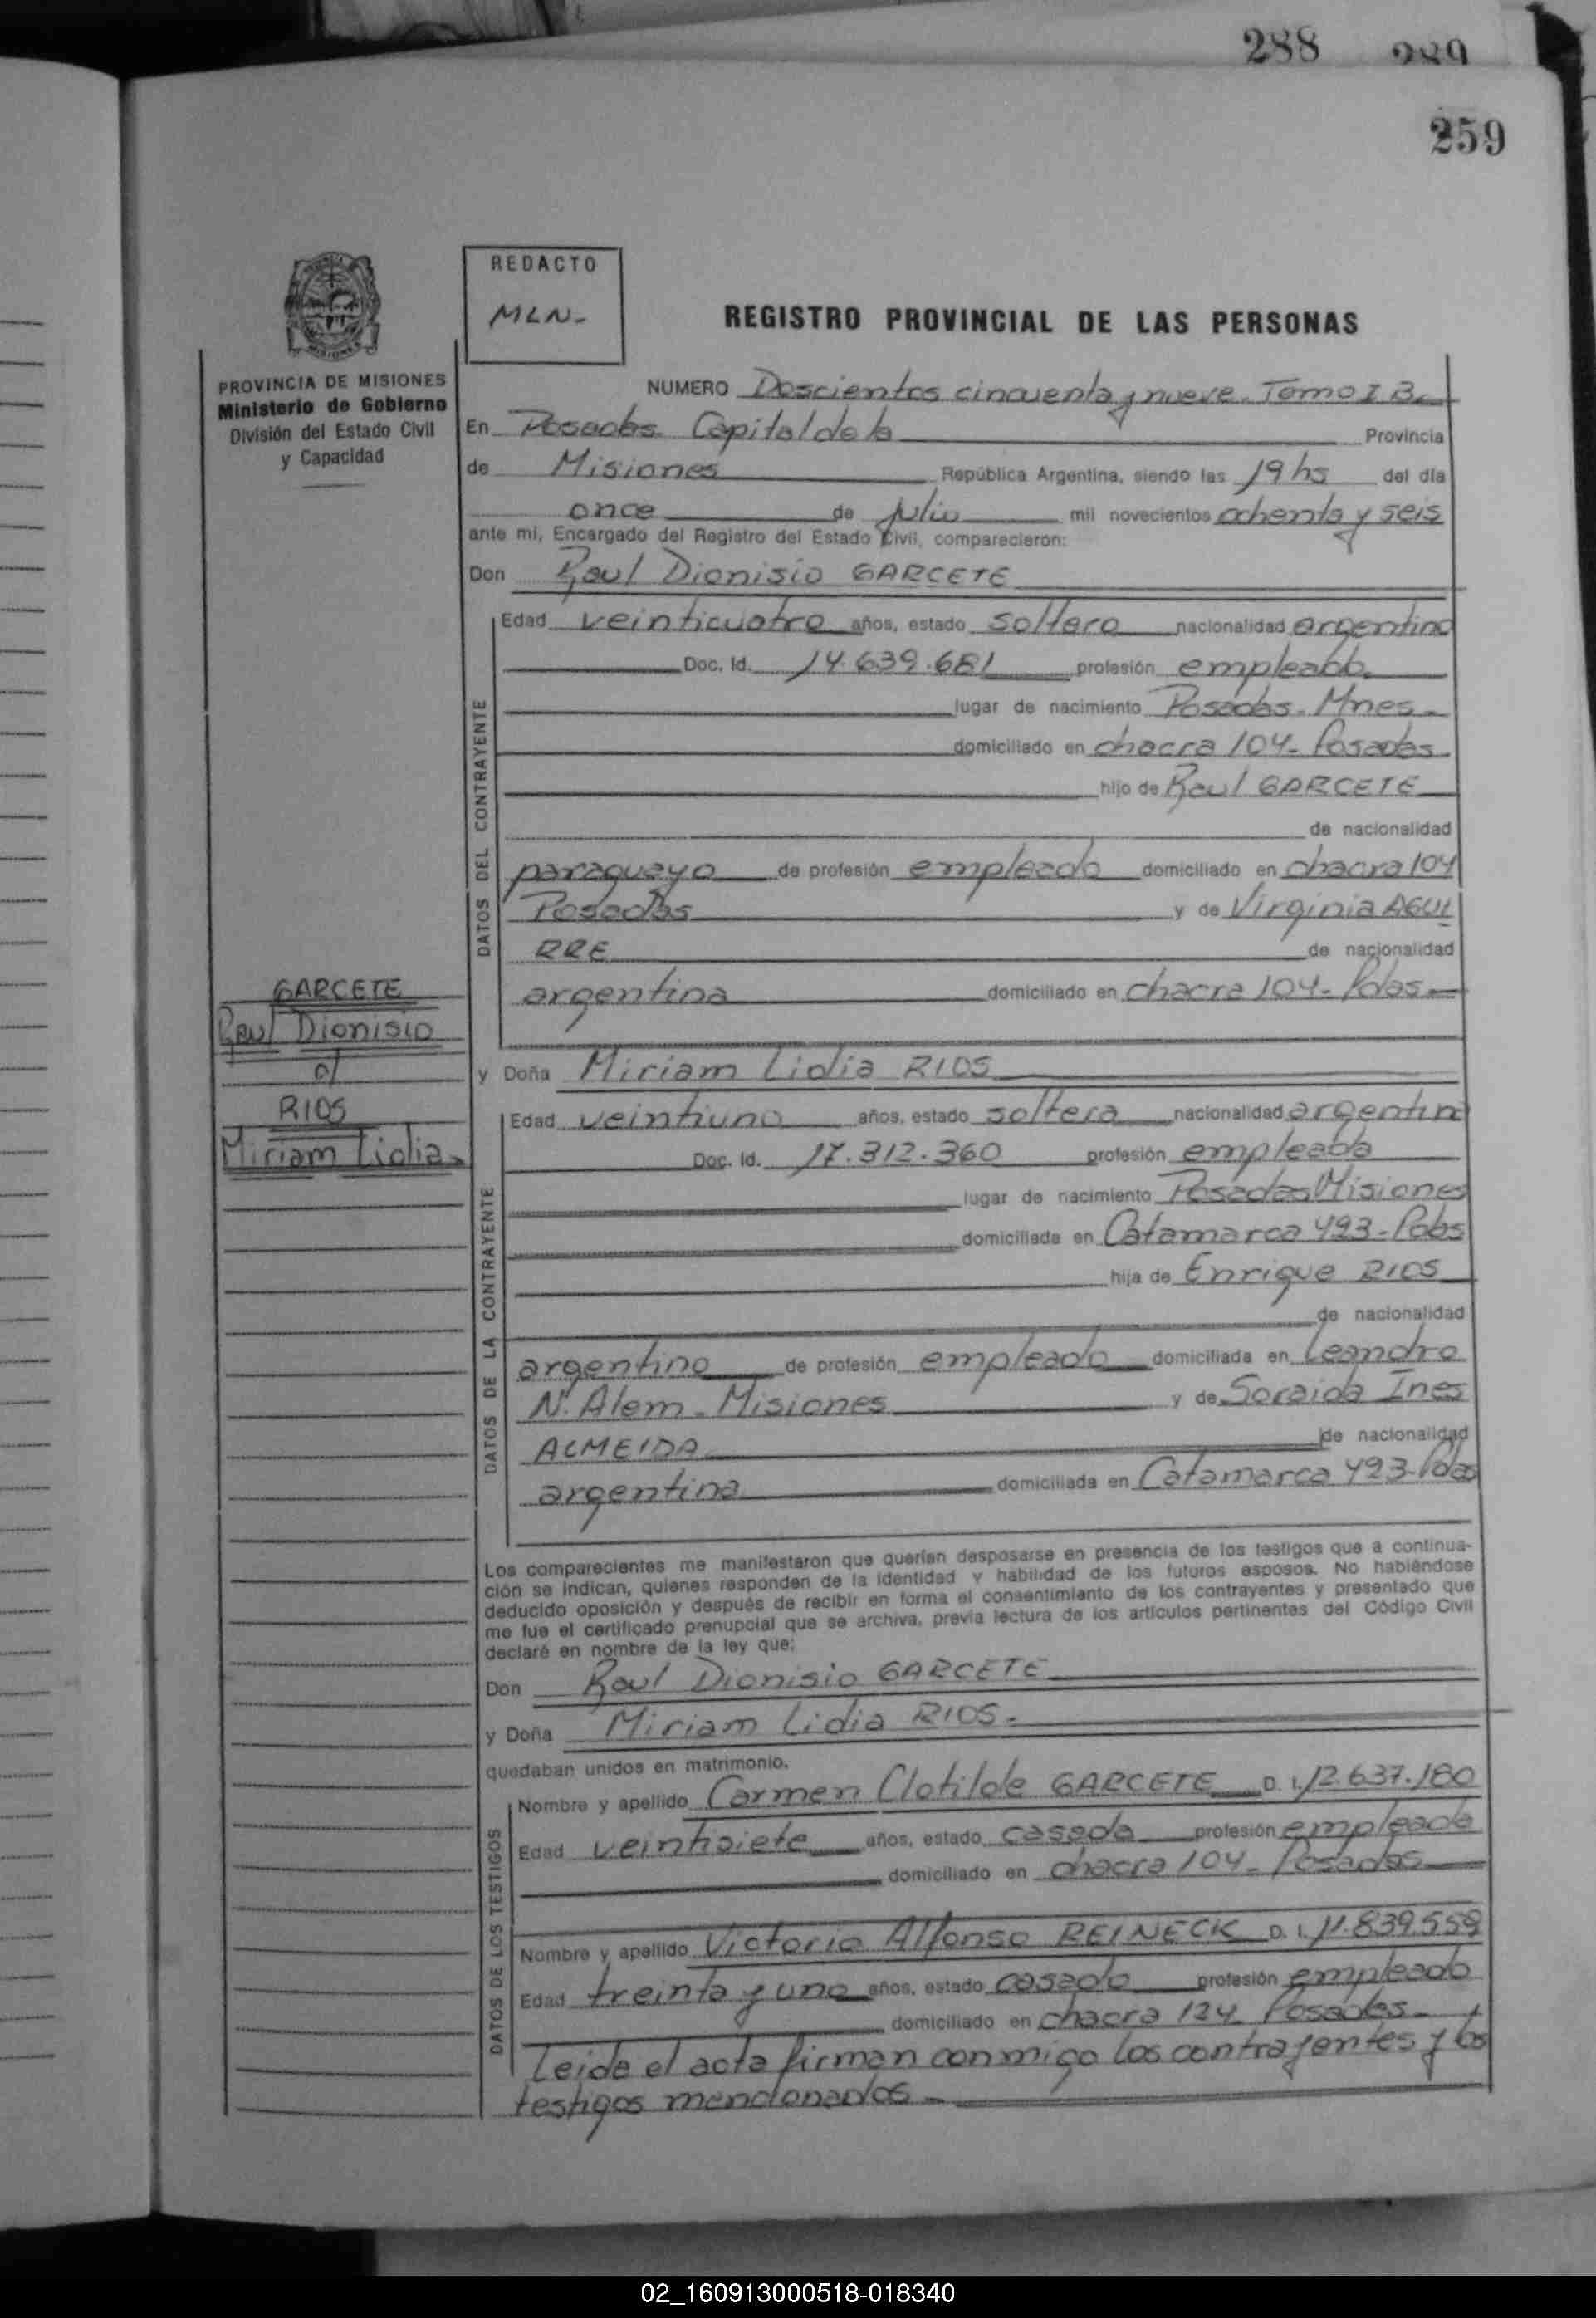 288 289
259
REDACTO
MLN-
REGISTRO PROVINCIAL DE LAS PERSONAS
PROVINCIA DE MISIONES
Ministerio de Gobierno
División del Estado Civil
y Capacidad
NUMERO Doscientos cincuenta y nueve. Tomo I B.
En Posadas Capital de la Provincia
de Misiones República Argentina, siendo las 19 hs del día
once de julio mil novecientos ochenta y seis
ante mi, Encargado del Registro del Estado Civil, comparecieron:
Don Raul Dionisio GARCETE
DATOS DEL CONTRAYENTE
Edad veinticuatro años, estado soltero nacionalidad argentino
Doc. Id. 14.639.681 profesión empleado.
lugar de nacimiento Posadas. Mnes.
domiciliado en chacra 104- Posadas
hijo de Raul GARCETE
de nacionalidad
paraguayo de profesión empleado domiciliado en chacra 104
Posadas y de Virginia AGUI
RRE de nacionalidad
argentina domiciliado en chacra 104- Pdas.
GARCETE
Raul Dionisio
c/
RIOS
Miriam Lidia.
y Doña Miriam Lidia RIOS
DATOS DE LA CONTRAYENTE
Edad veintiuno años, estado soltera nacionalidad argentina
Doc. Id. 17.312.360 profesión empleada
lugar de nacimiento Posadas Misiones
domiciliada en Catamarca 493- Pdas
hija de Enrique RIOS
de nacionalidad
argentino de profesión empleado domiciliada en Leandro
N. Alem - Misiones y de Soraida Ines
ALMEIDA de nacionalidad
argentina domiciliada en Catamarca 493- Pdas
Los comparecientes me manifestaron que querían desposarse en presencia de los testigos que a continua-
ción se indican, quienes responden de la identidad y habilidad de los futuros esposos. No habiéndose
deducido oposición y después de recibir en forma el consentimiento de los contrayentes y presentado que
me fue el certificado prenupcial que se archiva, previa lectura de los artículos pertinentes del Código Civil
declaré en nombre de la ley que:
Don Raul Dionisio GARCETE
y Doña Miriam Lidia RIOS.
quedaban unidos en matrimonio.
DATOS DE LOS TESTIGOS
Nombre y apellido Carmen Clotilde GARCETE D. I. 12.637.180
Edad veintisiete años, estado casada profesión empleada
domiciliado en chacra 104- Posadas
Nombre y apellido Victorio Alfonso REINECK D. I. 11.839.559
Edad treinta y uno años, estado casado profesión empleado
domiciliado en chacra 124 Posadas.
Leida el acta firman conmigo los contrayentes y los
testigos mencionados
02_160913000518-018340